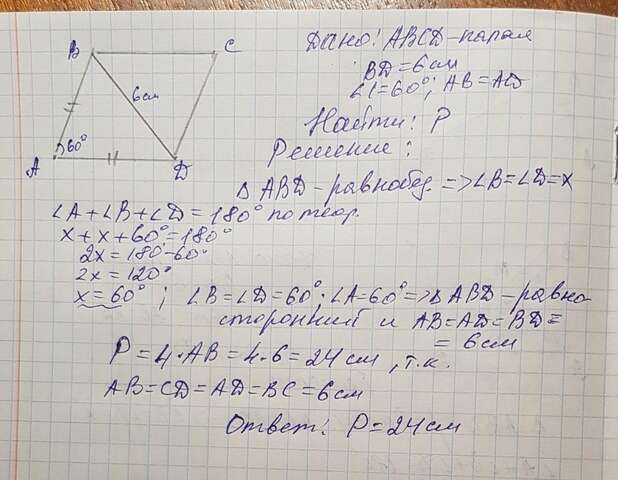 B C
6см
60°
A D
Дано: ABCD-парал
BD=6см
∠1=60°; AB=AD
Найти: P
Решение:
Δ ABD-равнобед. => ∠B=∠D=x
∠A+∠B+∠D=180° по теор.
x+x+60°=180°
2x=180-60°
2x=120°
x=60°; ∠B=∠D=60°; ∠A=60° => Δ ABD-равно-
сторонний и AB=AD=BD=
=6см
P=4·AB=4·6=24см, т.к.
AB=CD=AD=BC=6см
Ответ: P=24см